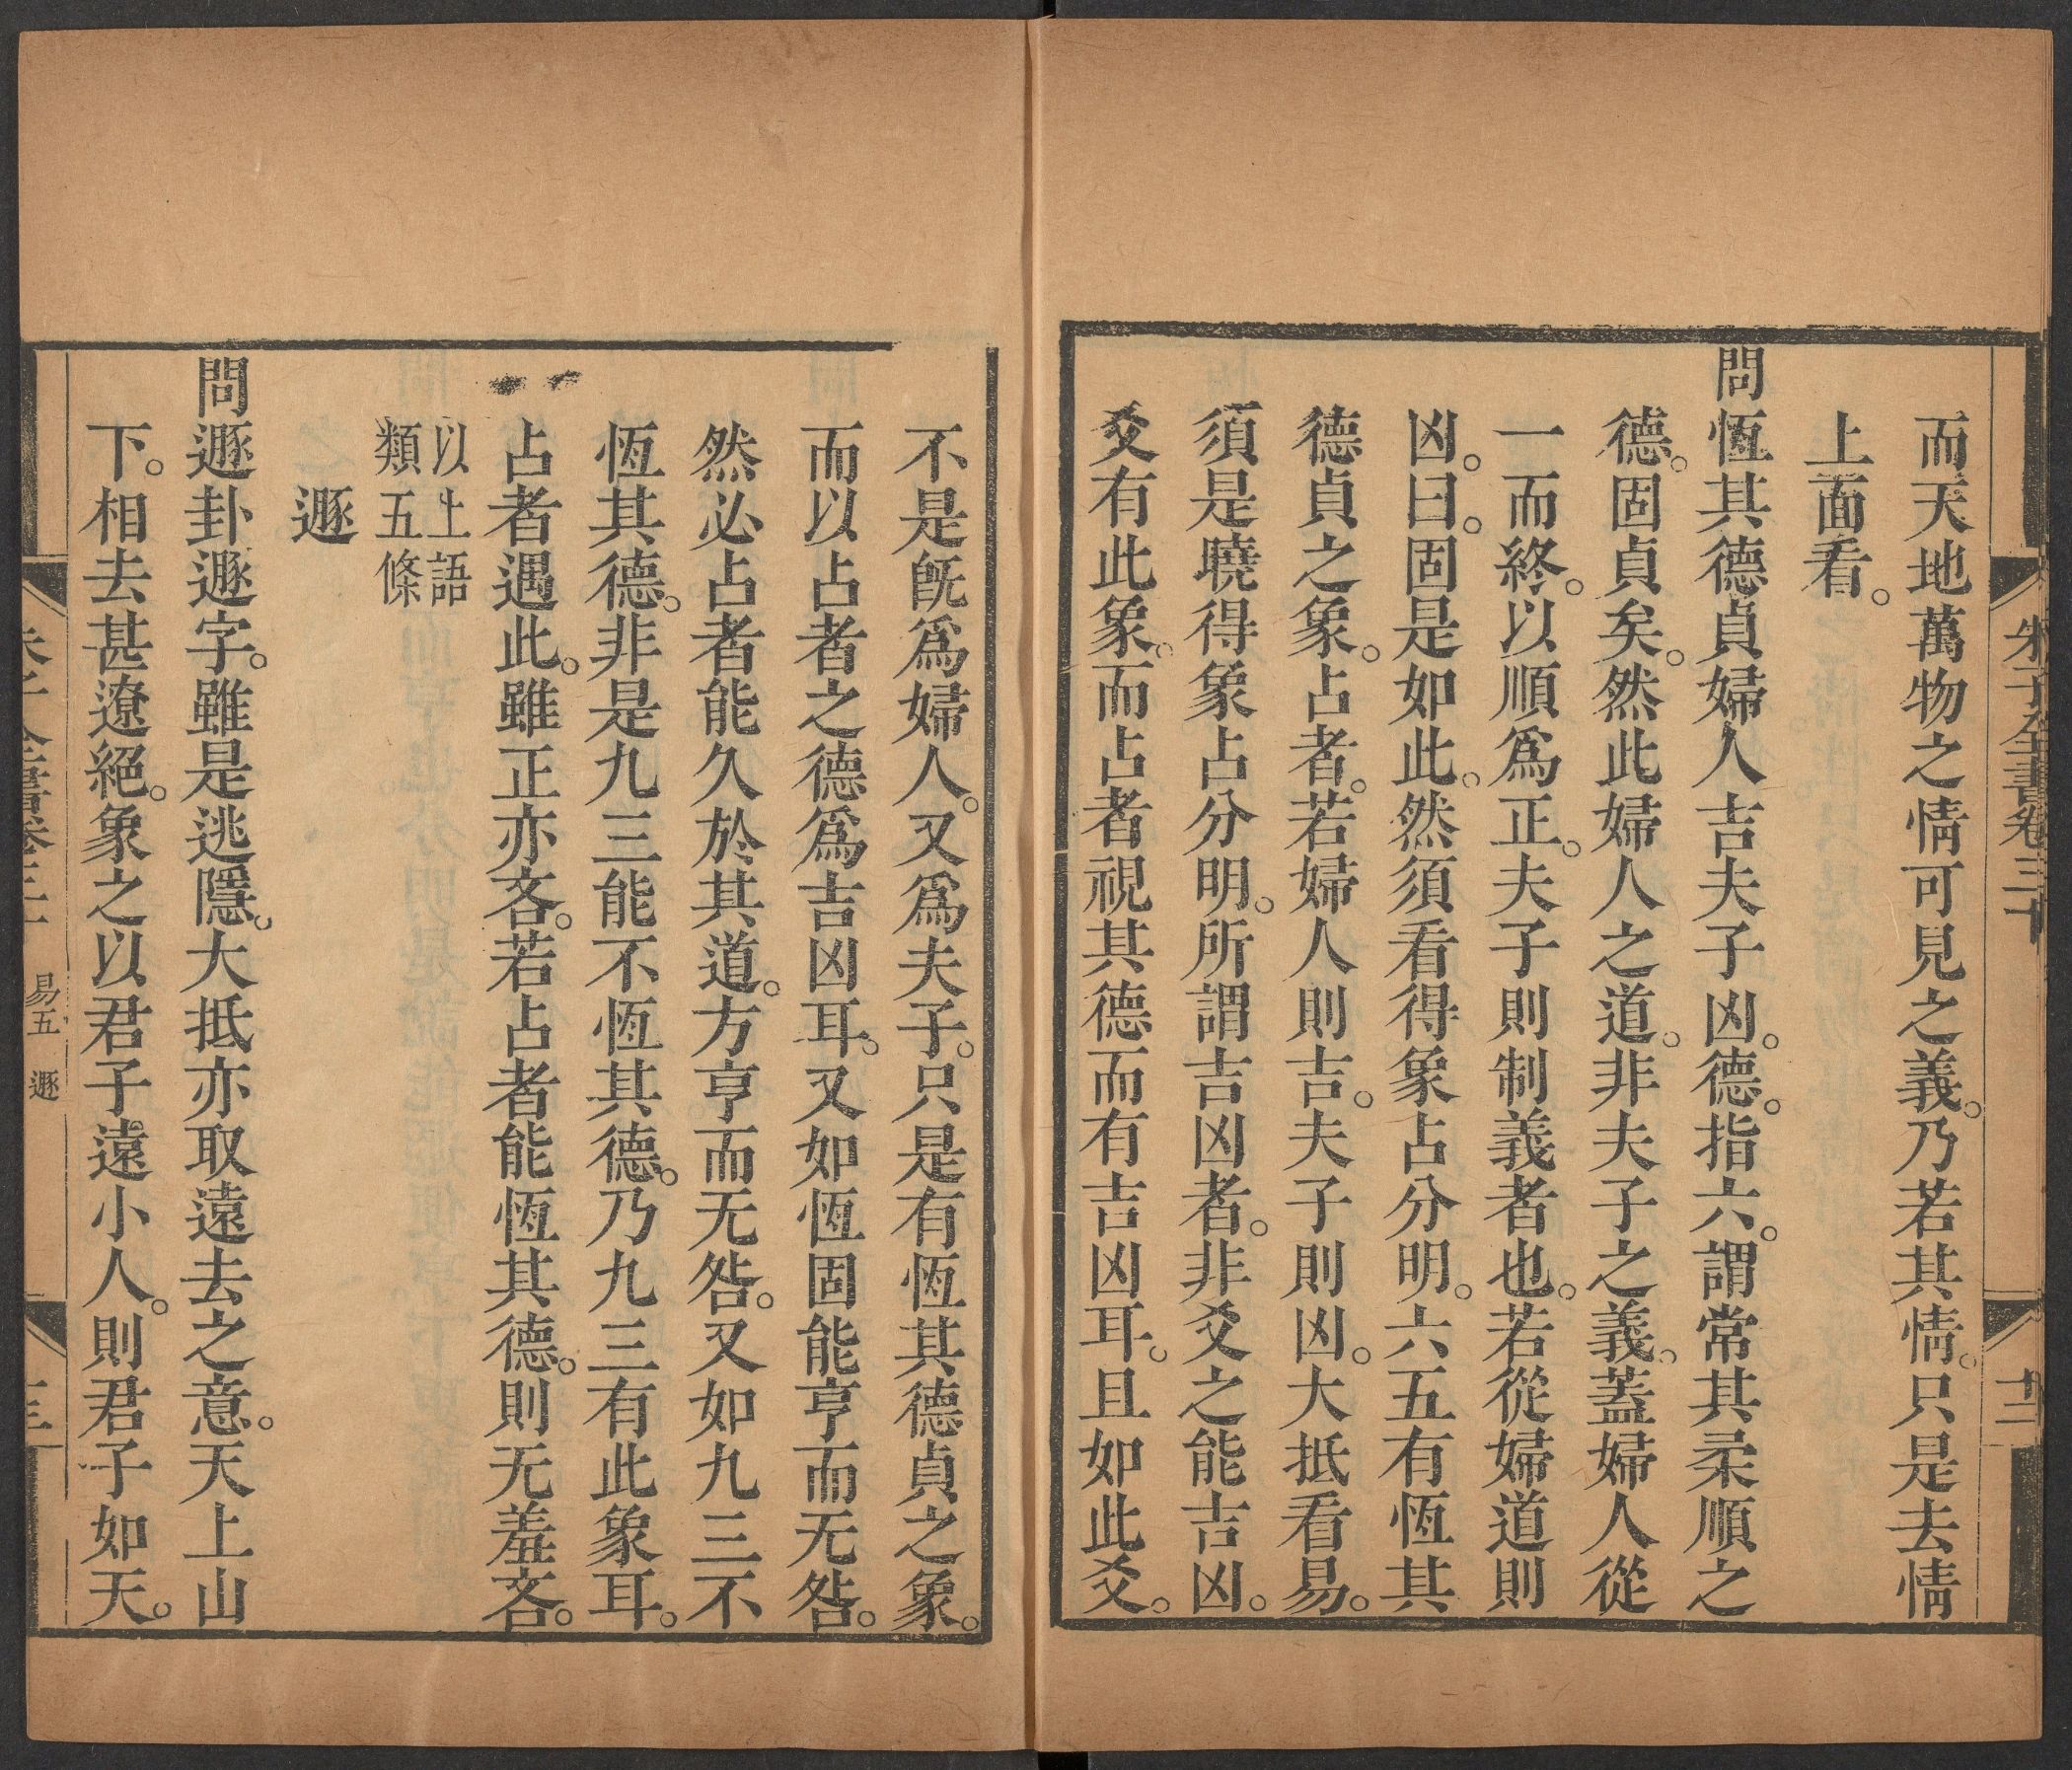 朱子全書卷三十
十二
而天地萬物之情可見之義。乃若其情。只是去情
上面看。
問恆其德貞婦人吉夫子凶。德。指六。謂常其柔順之
德。固貞矣。然此婦人之道。非夫子之義。蓋婦人從
一而終。以順爲正。夫子則制義者也。若從婦道則
凶。曰。固是如此。然須看得象占分明。六五有恆其
德貞之象。占者。若婦人則吉。夫子則凶。大抵看易。
須是曉得象占分明。所謂吉凶者。非爻之能吉凶。
爻有此象。而占者視其德而有吉凶耳。且如此爻。
不是旣爲婦人。又爲夫子。只是有恆其德貞之象。
而以占者之德爲吉凶耳。又如恆固能亨而无咎。
然必占者能久於其道。方亨而无咎。又如九三不
恆其德。非是九三能不恆其德。乃九三有此象耳。
占者遇此。雖正亦吝。若占者能恆其德。則无羞吝。
以上語
類五條
遯
問遯卦遯字。雖是逃隱。大抵亦取遠去之意。天上山
下。相去甚遼絕。象之以君子遠小人。則君子如天。
易五 遯